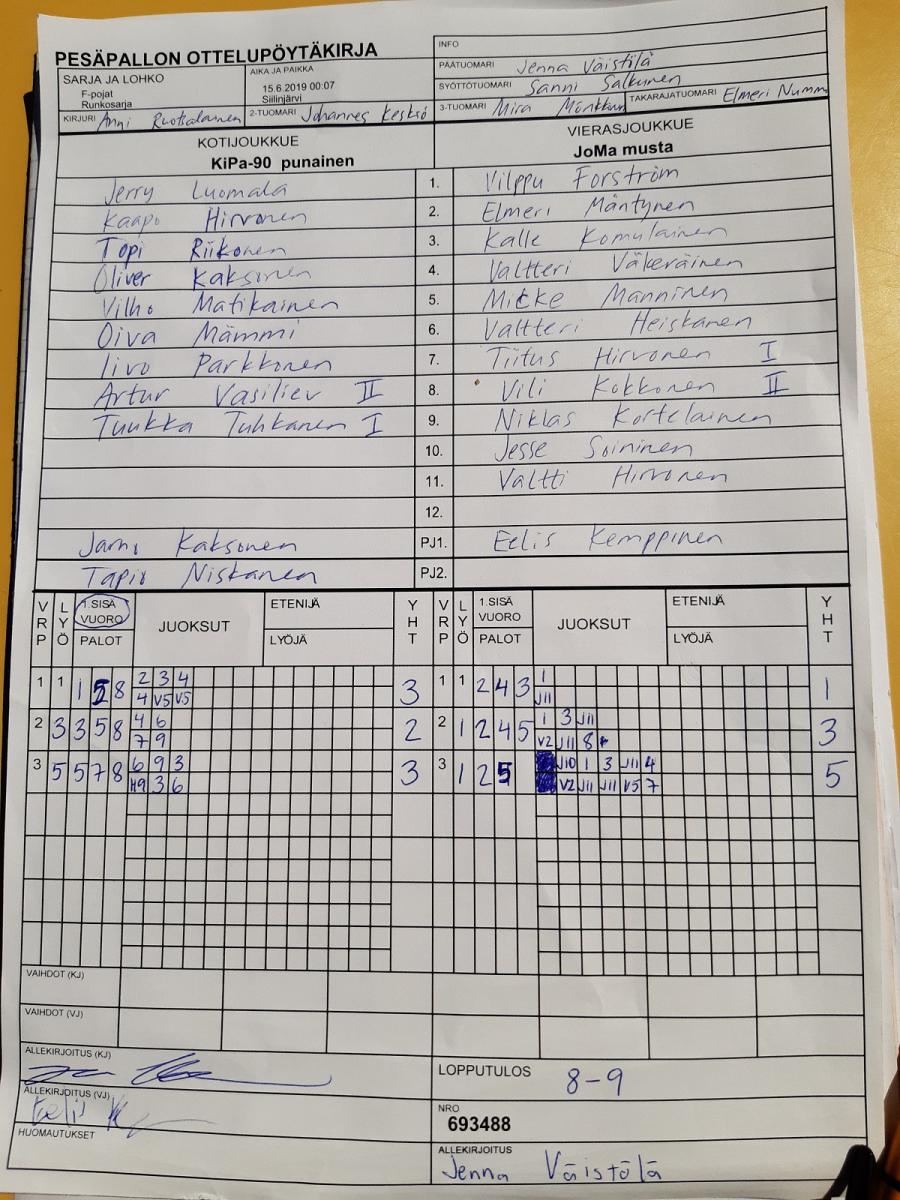 PESÄPALLON OTTELUPÖYTÄKIRJA
INFO
SARJA JA LOHKO
F-pojat
Runkosarja
AIKA JA PAIKKA
15.6.2019 00:07
Siilinjärvi
PÄÄTUOMARI Jenna Väistölä
SYÖTTÖTUOMARI Sanni Salkunen
KIRJURI Anni Ruotsalainen 2-TUOMARI Johannes
3-TUOMARI Mira Mönkkönen TAKARAJATUOMARI Elmeri
KOTIJOUKKUE VIERASJOUKKUE
KiPa-90 punainen JoMa musta
Jerry Luomala 1. Vilppu Forström
Kaapo Hirvonen 2. Elmeri Mäntynen
Topi Riikonen 3. Kalle Komulainen
Oliver Kaksonen 4. Valtteri Väkeräinen
Vilho Matikainen 5. Micke Manninen
Oiva Mämmi 6. Valtteri Heiskanen
Iivo Parkkonen 7. Tiitus Hirvonen I
Artur Vasiliev II 8. Vili Kokkonen II
Tuukka Tuhkanen I 9. Niklas Kortelainen
10. Jesse Soininen
11. Valtti Hirvonen
12.
Jarno Kaksonen PJ1. Eelis Kemppinen
Tapio Niskanen PJ2.
VRP LYÖ 1.SISÄ VUORO PALOT JUOKSUT ETENIJÄ LYÖJÄ YHT VRP LYÖ 1.SISÄ VUORO PALOT JUOKSUT ETENIJÄ LYÖJÄ YHT
1 1 1 5 8 2 3 4 3 1 1 2 4 3 1 1
4 V5 V5 J11
2 3 3 5 8 4 6 2 2 1 2 4 5 1 3 J11 3
7 9 V2 J11 8
3 5 5 7 8 6 9 3 3 3 1 2 5 J10 1 3 J11 4 5
H9 3 6 V2 J11 J11 V5 7
VAIHDOT (KJ)
VAIHDOT (VJ)
ALLEKIRJOITUS (KJ)
LOPPUTULOS 8-9
ALLEKIRJOITUS (VJ)
Eelis
NRO
693488
HUOMAUTUKSET
ALLEKIRJOITUS
Jenna Väistölä